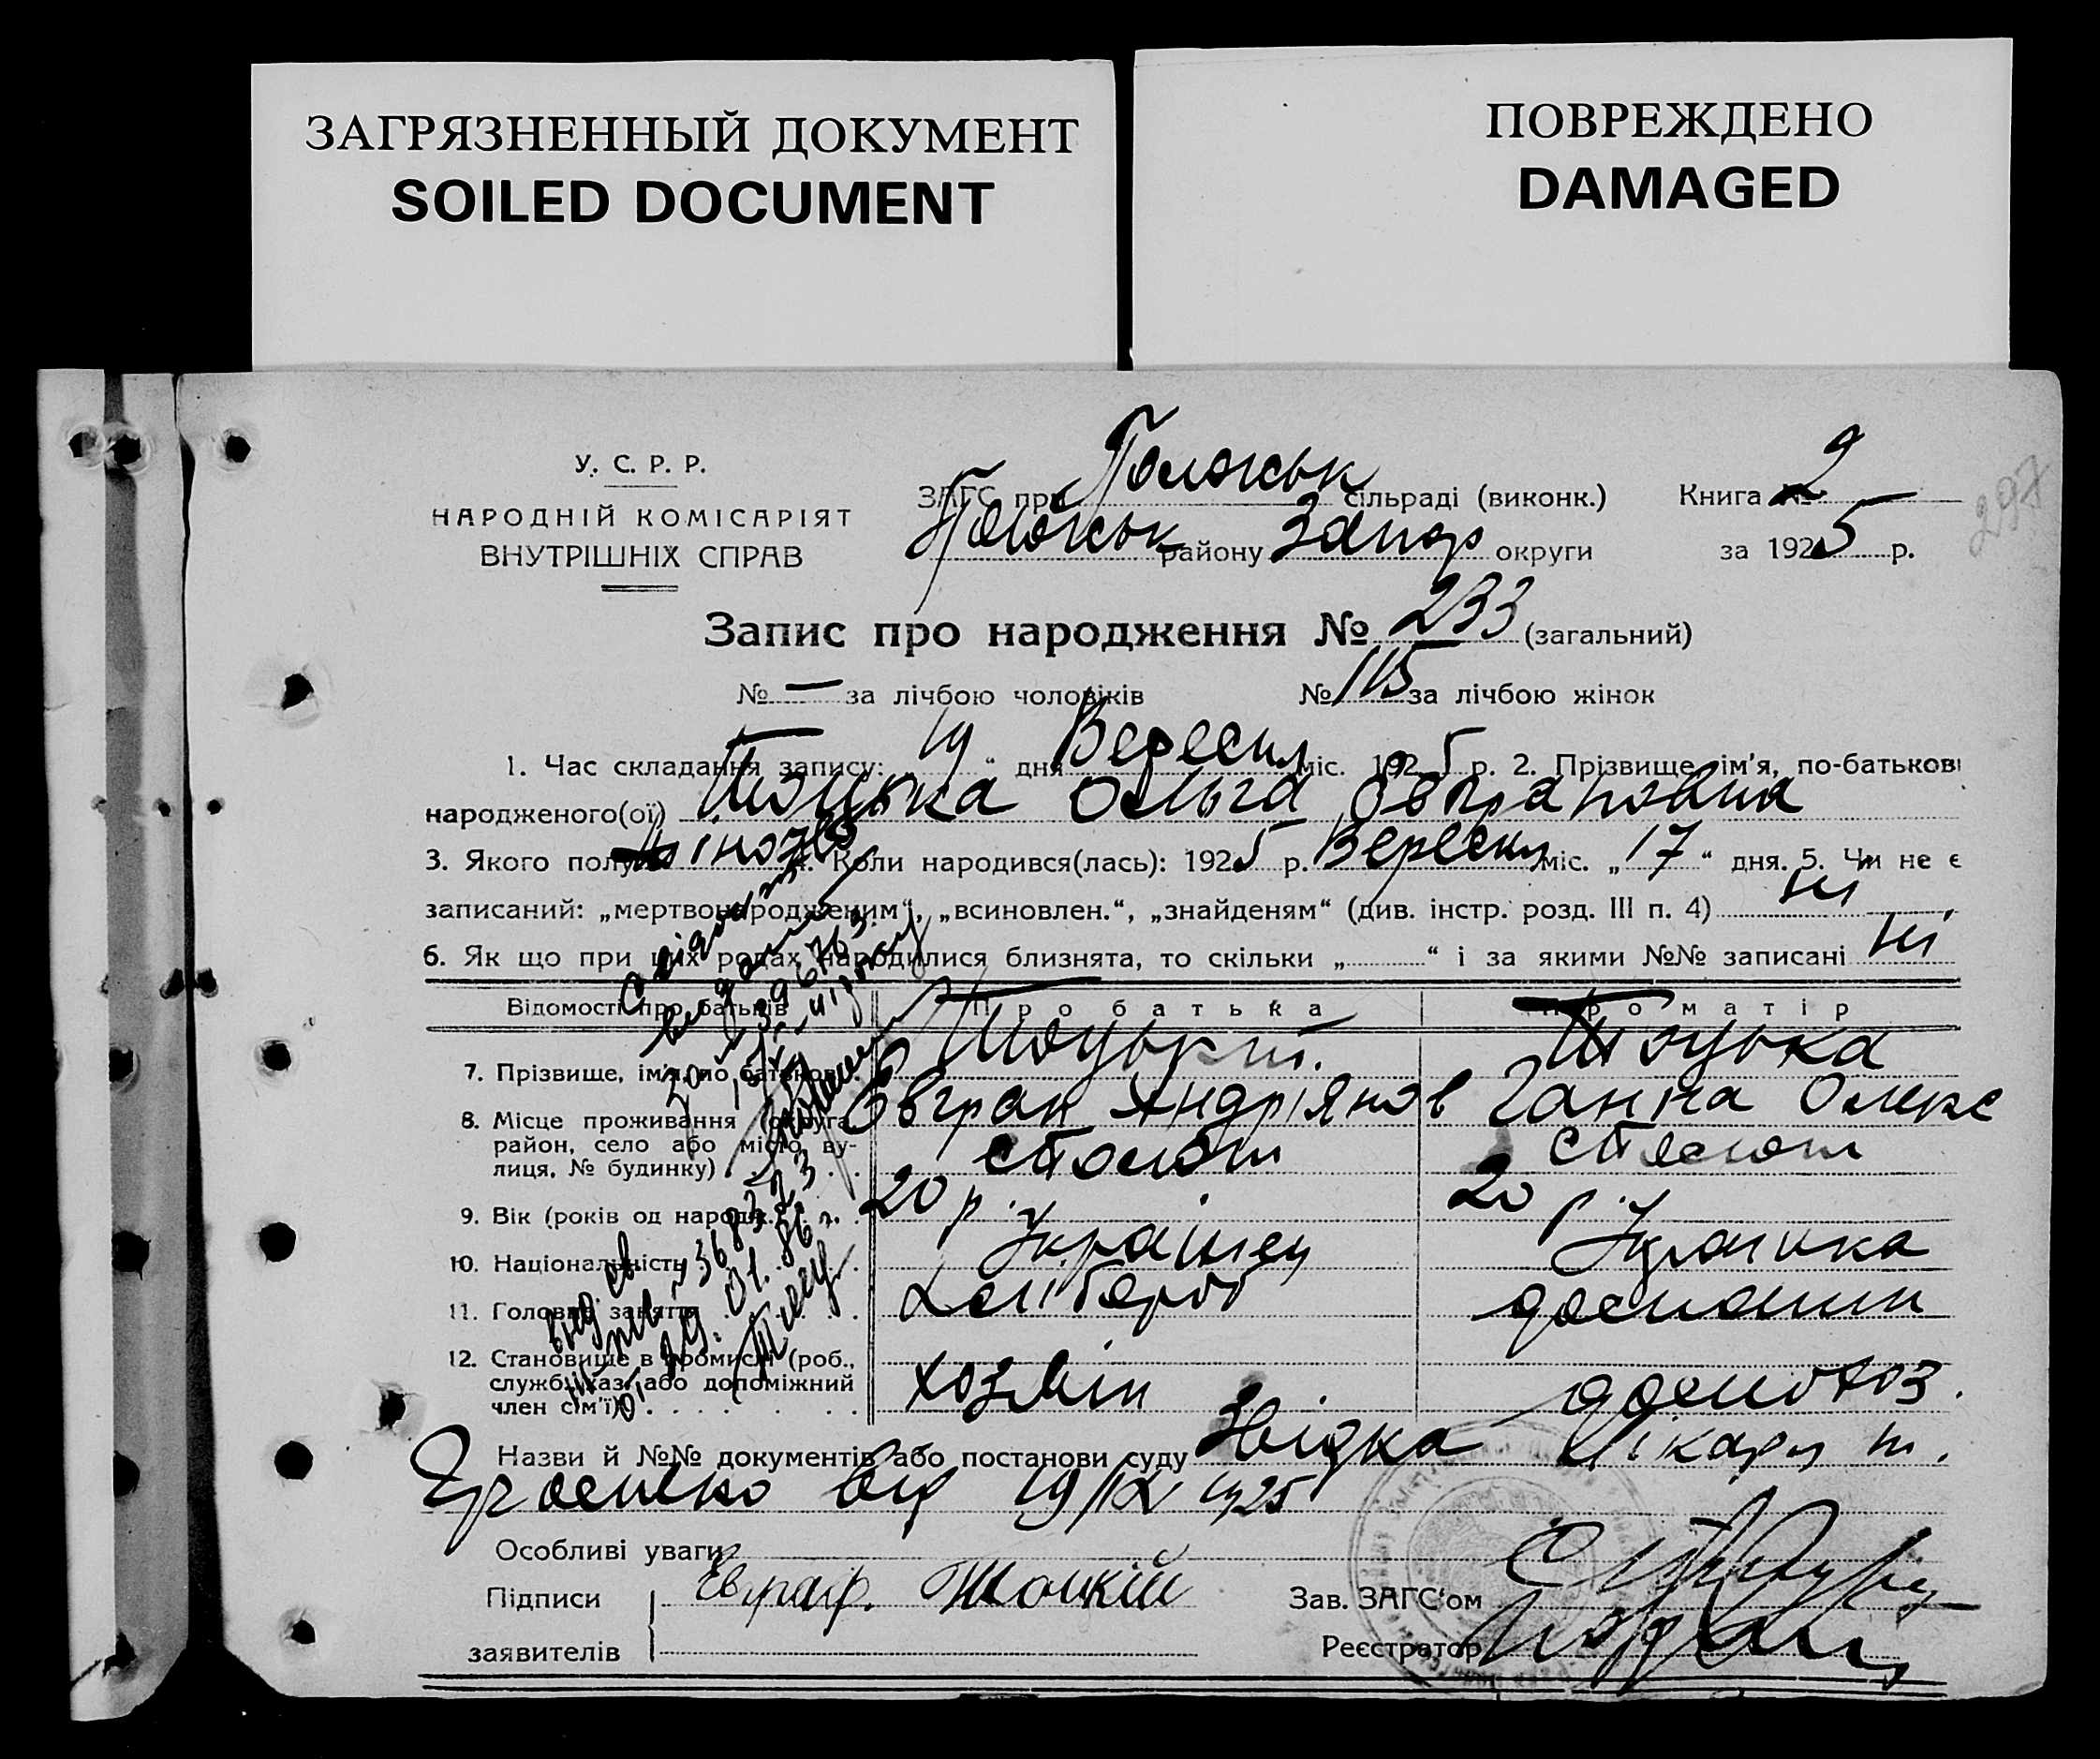 ЗАГРЯЗНЕННЫЙ ДОКУМЕНТ
SOILED DOCUMENT
ПОВРЕЖДЕНО
DAMAGED
У. С. Р. Р.
НАРОДНІЙ КОМІСАРІЯТ
ВНУТРІШНІХ СПРАВ
ЗАГС при Положськ сільраді (виконк.)
Положськ району Запор округи
Книга № 2
за 1925 р.
297
Запис про народження № 233 (загальний)
№ — за лічбою чоловіків № 115 за лічбою жінок
1. Час складання запису: 19 " дня Вересня міс. 1925 р. 2. Прізвище, ім'я, по-батькові
народженого(ої) Тоцька Ольга Євграповна
3. Якого полу жіноч 4. Коли народився(лась): 1925 р. Вересня міс. „ 17 " дня. 5. Чи не є
записаний: „мертвонародженим", „всиновлен.", „знайденям" (див. інстр. розд. III п. 4) ні
6. Як що при цих родах народилися близнята, то скільки „ " і за якими №№ записані ні
Відомості про батьків Про батька Про матір
7. Прізвище, ім'я, по батькові Тоцький Тоцька
Євграп Андріянов Ганна Олекс
8. Місце проживання (округа,
район, село або місто, ву-
лиця, № будинку) ст Пологи ст Пологи
9. Вік (років од народж.) 20 р. 20 р.
10. Національність Українец Українка
11. Головне заняття Хлібороб домашн
12. Становище в промислі (роб.,
службч. хаз. або допоміжний
член сім'ї) хозяїн домохоз.
Назви й №№ документів або постанови суду Звідка Лікаря
від 19/IX 1925
Особливі уваги
Підписи Евграф. Тоцкий
заявителів
Зав. ЗАГС'ом
Реєстратор